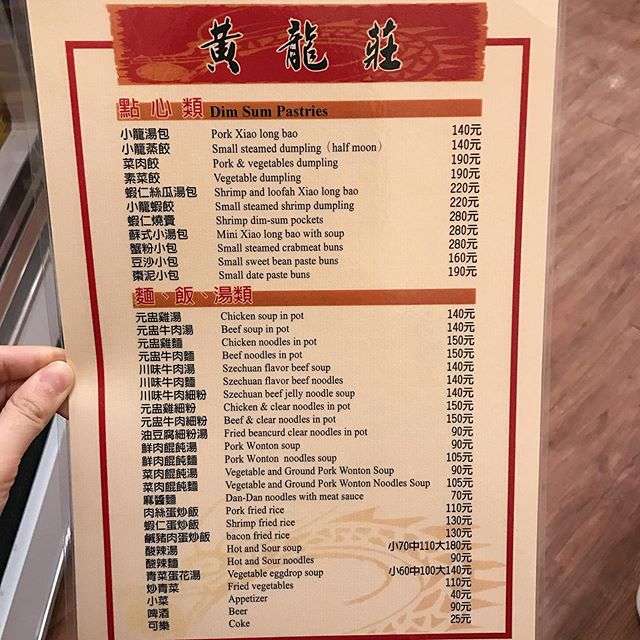 黃龍莊
點心類 Dim Sum Pastries
小龍湯包 Pork Xiao long bao 140元
小龍蒸餃 Small steamed dumpling (half moon) 140元
菜肉餃 Pork & vegetables dumpling 190元
素菜餃 Vegetable dumbling 190元
蝦仁絲瓜湯包 Shrimp and loofah Xiao long bao 220元
小龍蝦餃 Small steamed shrimp dumpling 220元
蝦仁燒賣 Shrimp dim-sum pockets 280元
蘇式小湯包 Mini Xiao long bao with soup 280元
蟹粉小包 Small steamed crabmeat buns 280元
豆沙小包 Small sweet bean paste buns 160元
棗泥小包 Small date paste buns 190元
麵、飯、湯類
元盅雞湯 Chicken soup in pot 140元
元盅牛肉湯 Beef soup in pot 140元
元盅雞麵 Chicken noodles in pot 150元
元盅牛肉麵 Beef noodles in pot 150元
川味牛肉湯 Szechuan flavor beef soup 140元
川味牛肉麵 Szechuan flavor beef noodles 140元
川味牛肉細粉 Szechuan beef jelly noodle soup 140元
元盅雞細粉 Chicken & clear noodles in pot 150元
元盅牛肉細粉 Beef & clear noodles in pot 150元
油豆腐細粉湯 Fried beancurd clear noodles in pot 90元
鮮肉餛飩湯 Pork Wonton soup 90元
鮮肉餛飩麵 Pork Wonton noodles soup 105元
菜肉餛飩湯 Vegetable and Ground Pork Wonton Soup 90元
菜肉餛飩麵 Vegetable and Ground Pork Wonton Noodles Soup 105元
麻醬麵 Dan-Dan noodles with meat sauce 70元
肉絲蛋炒飯 Pork fried rice 110元
蝦仁蛋炒飯 Shrimp fried rice 130元
鹹豬肉蛋炒飯 bacon fried rice 130元
酸辣湯 Hot and Sour soup 小70中110大180元
酸辣麵 Hot and Sour noodles 90元
青菜蛋花湯 Vegetable eggdrop soup 小60中100大140元
炒青菜 Fried vegetables 110元
小菜 Appetizer 40元
啤酒 Beer 90元
可樂 Coke 25元